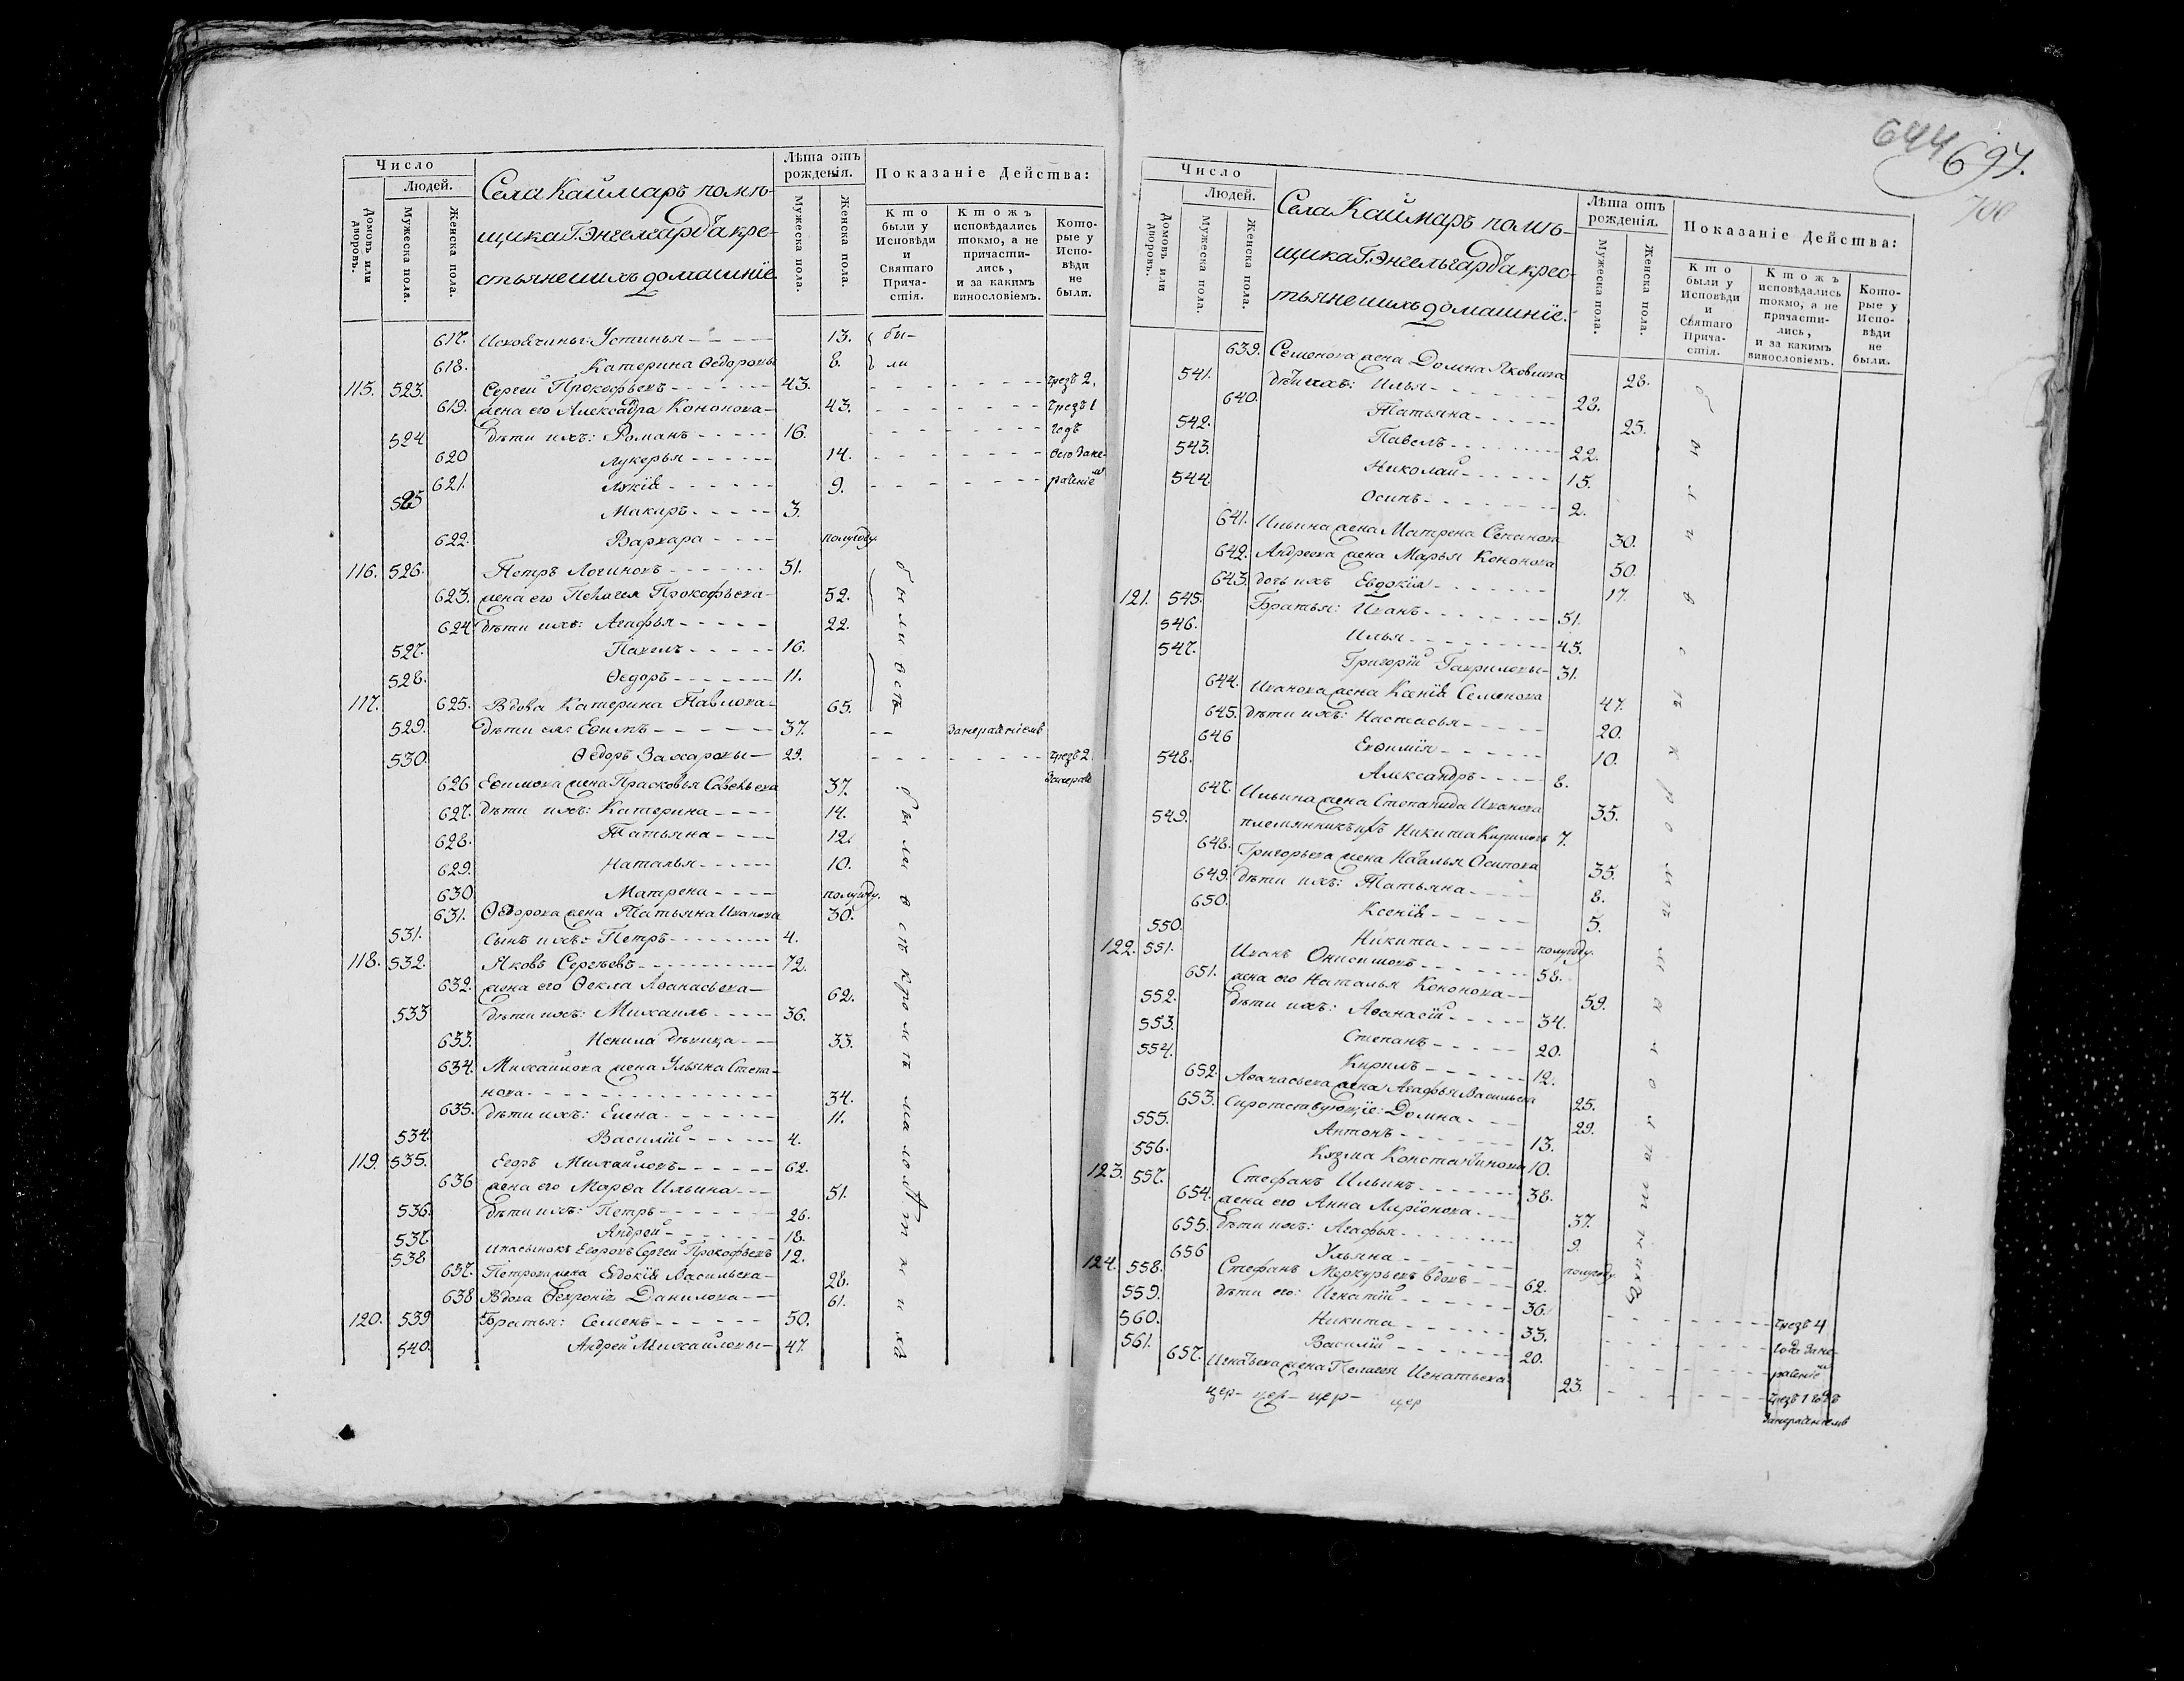 644
697.
700
Число
Людей.
Домовъ или дворовъ.
Мужеска пола.
Женска пола.
Села Каймаръ помѣ-
щика Г. Энгелгарда кре-
стьяне и ихъ домашнїе
Лѣта отъ рожденїя.
Мужеска пола.
Женска пола.
Показанїе Действа:
Кто были у Исповѣди и Святаго Прича-стїя.
Ктожъ исповѣдались токмо, а не причасти-лись, и за какимъ винословїемъ.
Кото-рые у Испо-вѣди не были.
617. Устинья 13. бы-
618. Катерина Ѳедоровы 8. ли
115. 523. Сергей Прокофьевъ 43. чрезъ 2.
619. жена его Александра Кононова 43. чрезъ 1
524 дѣти ихъ: Романъ 16. годъ
620 Лукерья 14.
621. Лукїя 9.
525 Макаръ 3.
622. Варвара полугоду.
116. 526. Петръ Логиновъ 51.
623. жена его Пелагея Прокофьева 52.
624 дѣти ихъ: Агафья 22.
527. Павелъ 16.
528. Ѳедоръ 11.
117. 625. Вдова Катерина Павлова 65.
529. дѣти ея: Еѳимъ 37. за нерадѣнїемъ
530. Ѳедоръ Захаровы 29. чрезъ 2
626 Еѳимова жена Прасковья Савельева 37.
627. дѣти ихъ: Катерина 14.
628. Татьяна 12.
629. Наталья 10.
630 Матрена полугоду.
631. Ѳедорова жена Татьяна Иванова 30.
531. Сынъ ихъ: Петръ 4.
118. 532. Яковъ Сергѣевъ 72.
632. жена его Ѳекла Аѳанасьева 62.
533 дѣти ихъ: Михаилъ 36.
633. Ненила дѣвица 33.
634. Михайлова жена Ульяна Степа-
нова 34.
635. дѣти ихъ: Елена 11.
534. Василїй 4.
119. 535. Егоръ Михайловъ 62.
636 жена его Марѳа Ильина 51.
536. дѣти ихъ: Петръ 26.
537. Андрей 18.
538 и пасынокъ Егоровъ Сергей Прокофьевъ 12.
637. Петрова жена Евдокїя Васильева 28.
638 Вдова Ѳевронїя Данилова 61.
120. 539 Братья: Семенъ 50.
540. Андрей Михайловы 47.
были всѣ
были всѣ кромѣ малолѣтнихъ
Число
Людей.
Домовъ или дворовъ.
Мужеска пола.
Женска пола.
Села Каймаръ помѣ-
щика Г. Энгельгарда крес-
тьяне и ихъ домашнїе.
Лѣта отъ рожденїя.
Мужеска пола.
Женска пола.
Показанїе Действа:
Кто были у Исповѣди и Святаго Прича-стїя.
Ктожъ исповѣдались токмо, а не причасти-лись, и за какимъ винословїемъ.
Кото-рые у Испо-вѣди не были.
639. Семенова жена Домна Яковлева 28.
541. дѣти ихъ: Илья 28.
640. Татьяна 25.
542. Павелъ 22.
543. Николай 15.
544. Осипъ 2.
641. Ильина жена Матрена Семенова 30.
642. Андреева жена Марья Кононова 50.
643. дочь ихъ Евдокїя 17.
121. 545. Братья: Иванъ 51.
546. Илья 45.
547. Григорїй Гавриловы 31.
644. Иванова жена Ксенїя Семенова 47.
645. дѣти ихъ: Настасья 20.
646 Евѳимїя 10.
548. Александръ 8.
647. Ильина жена Степанида Иванова 35.
549. племянникъ ихъ Никита Кириловъ 7.
648. Григорьева жена Наталья Осипова 35.
649. дѣти ихъ: Татьяна 8.
650. Ксенїя 5.
550. Никита полугоду.
122. 551. Иванъ Онисимовъ 58.
651. жена его Наталья Кононова 59.
552. дѣти ихъ: Аѳанасїй 34.
553. Степанъ 20.
554. Кирилъ 12.
652. Аѳанасьева жена Агафья Васильева 25.
653. Сиротствующїе: Домна 29.
555. Антонъ 13.
556. Кузма Константиновы 10.
123. 557. Стефанъ Ильинъ 38.
654. жена его Анна Ларїонова 37.
655. дѣти ихъ: Агафья 9.
656 Ульяна полугоду
124. 558. Стефанъ Меркурьевъ вдовъ 62.
559. дѣти его: Игнатїй 36. чрезъ 4
560. Никита 33. года за не-
561. Василїй 20. радѣнїе
657. Игнатьева жена Пелагея Игнатьева 23. чрезъ 1 годъ
за нерадѣнїемъ
были всѣ кромѣ малолѣтнихъ
цер- цер- цер- цер